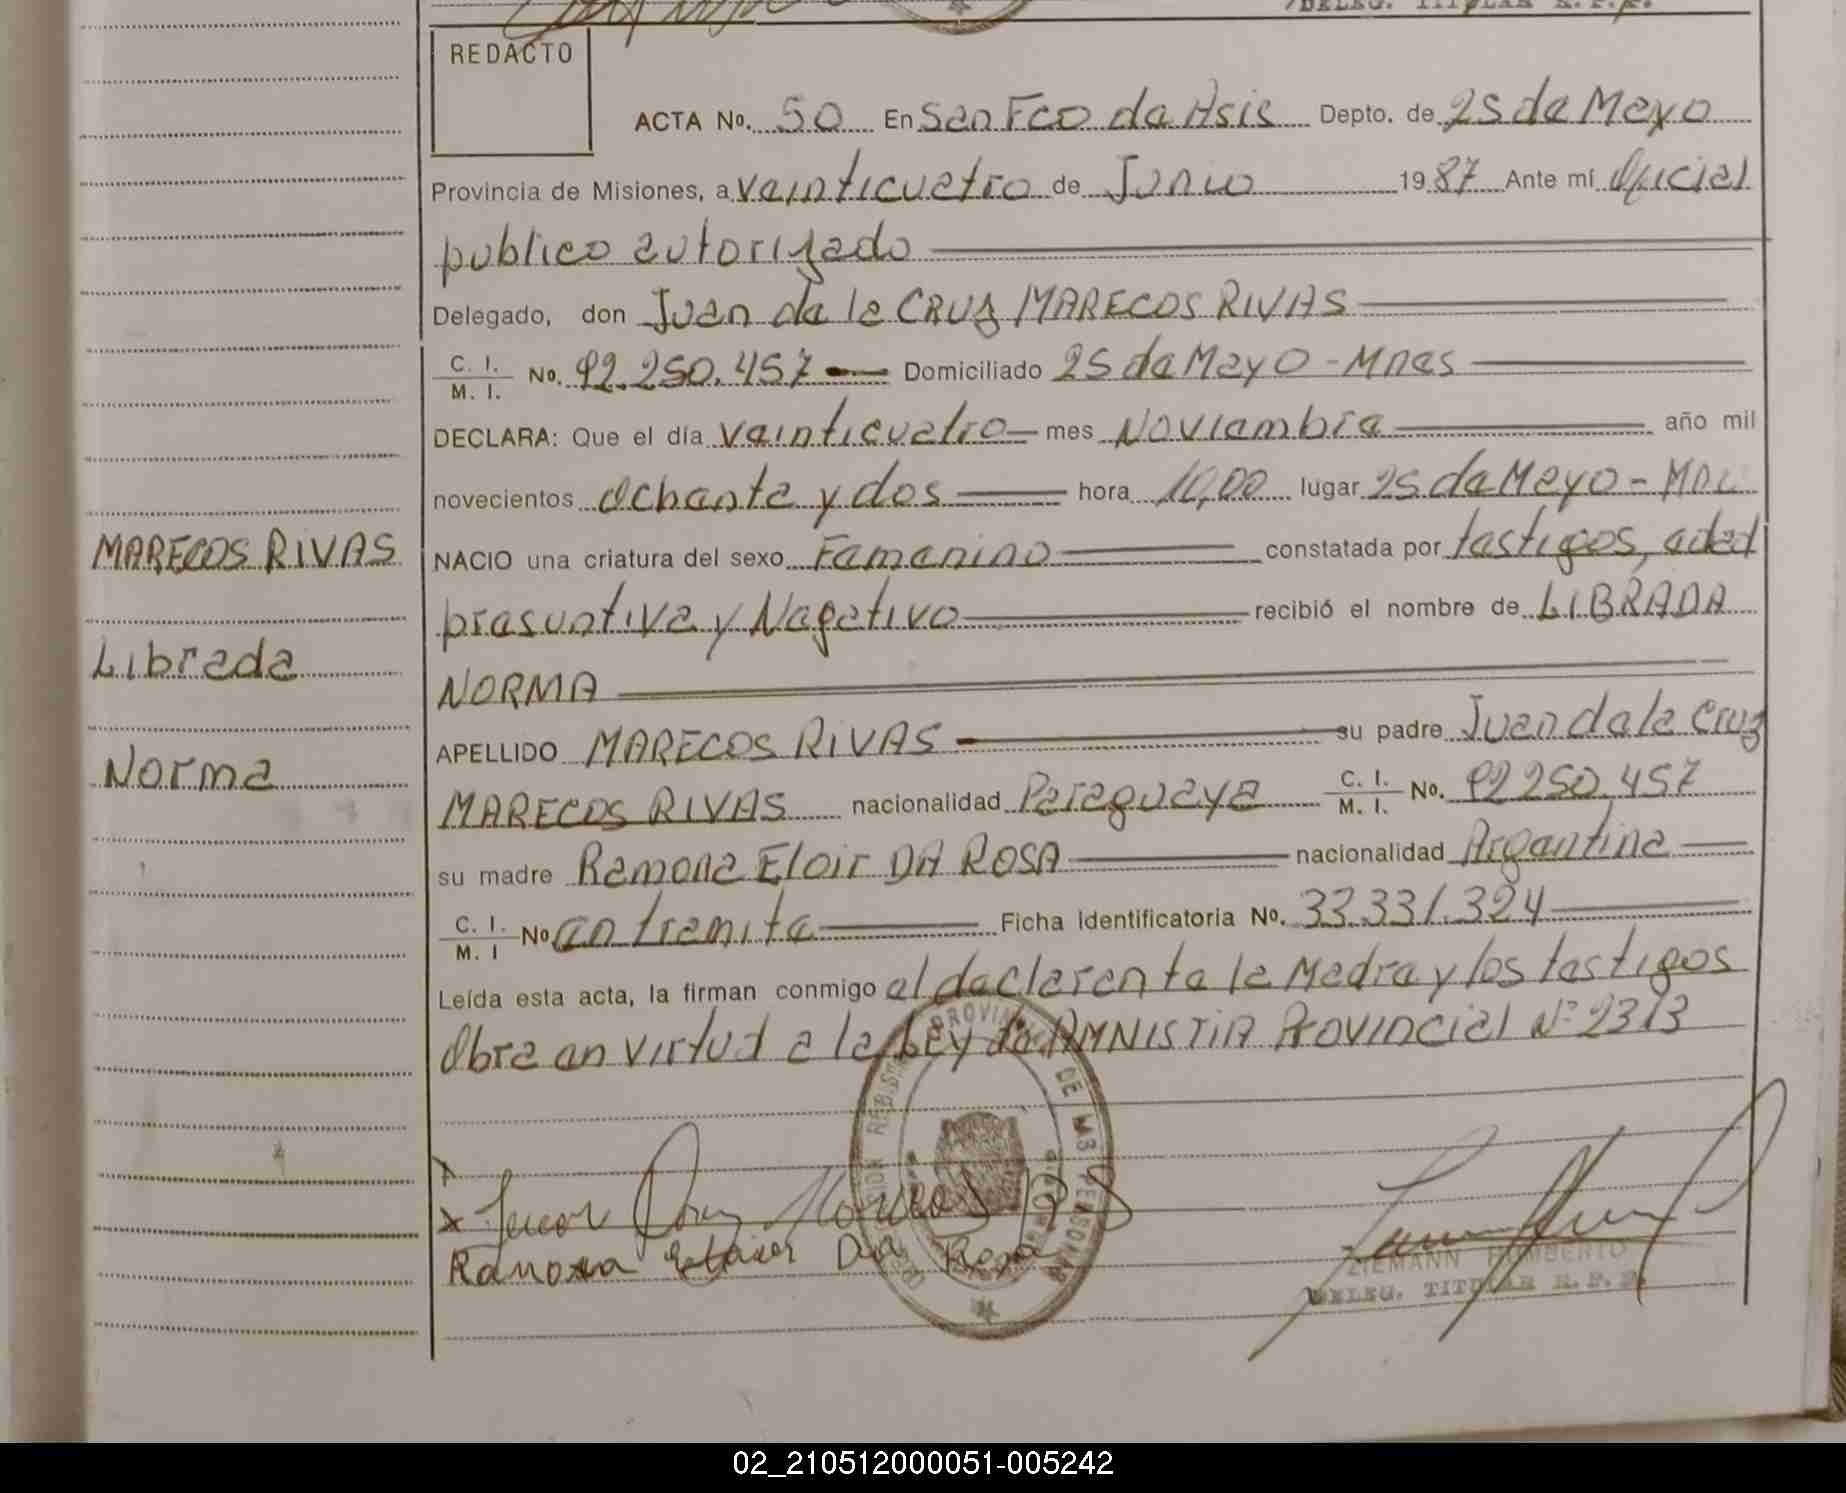 DELEG. TITULAR R.P.P.
REDACTO
ACTA No. 50 En San Fco de Asis Depto. de 25 de Mayo
Provincia de Misiones, a veinticuatro de Junio 1987 Ante mí Oficial
publico autorizado
Delegado, don Juan de la CRUZ MARECOS RIVAS
C. I.
M. I. No. 92.250.457 Domiciliado 25 de Mayo - Mnes
DECLARA: Que el día veinticuatro mes Noviembre año mil
novecientos Ochenta y dos hora 10,00 lugar 25 de Mayo -
NACIO una criatura del sexo Femenino constatada por testigos, edad
presuntiva y Negativo recibió el nombre de LIBRADA
NORMA
APELLIDO MARECOS RIVAS su padre Juan de la Cruz
MARECOS RIVAS nacionalidad Paraguaya C. I.
M. I. No. 92250.457
su madre Ramona Eloir DA ROSA nacionalidad Argentina
C. I.
M. I No en tramite Ficha Identificatoria No. 33.331.324
Leída esta acta, la firman conmigo el declarente la Madre y los testigos
Obra en virtud a la LEY de AMNISTIA PROVINCIAL Nº 2313
MARECOS RIVAS
Librada
Norma
PROVINCIA DE MISIONES
Ramona Da Rosa
ZIEMANN HUMBERTO
DELEG. TITULAR R.P.P.
02_210512000051-005242